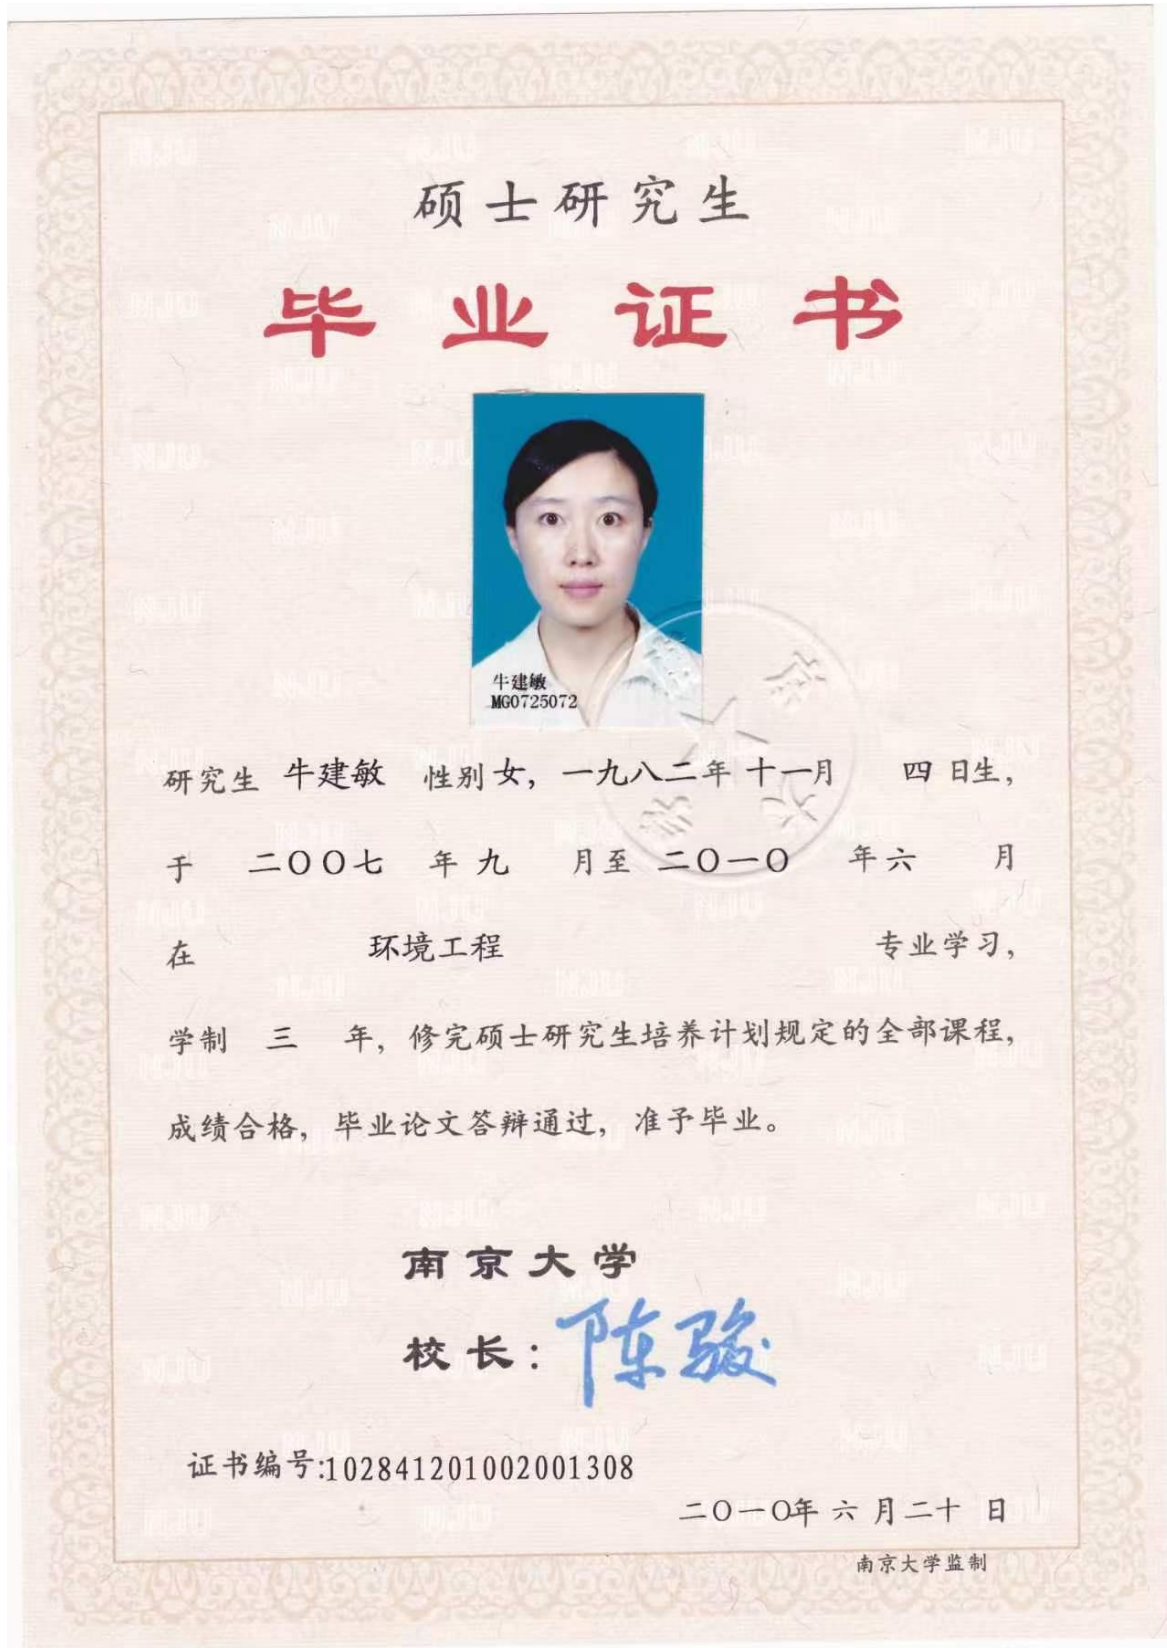 硕士研究生
毕业证书
牛建敏
MG0725072
研究生 牛建敏 性别 女，一九八二年 十一月 四 日生，
于 二〇〇七 年 九 月至 二〇一〇 年 六 月
在 环境工程 专业学习，
学制 三 年，修完硕士研究生培养计划规定的全部课程，
成绩合格，毕业论文答辩通过，准予毕业。
南京大学
校长：陈骏
证书编号:102841201002001308
二〇一〇年 六 月 二十 日
南京大学监制